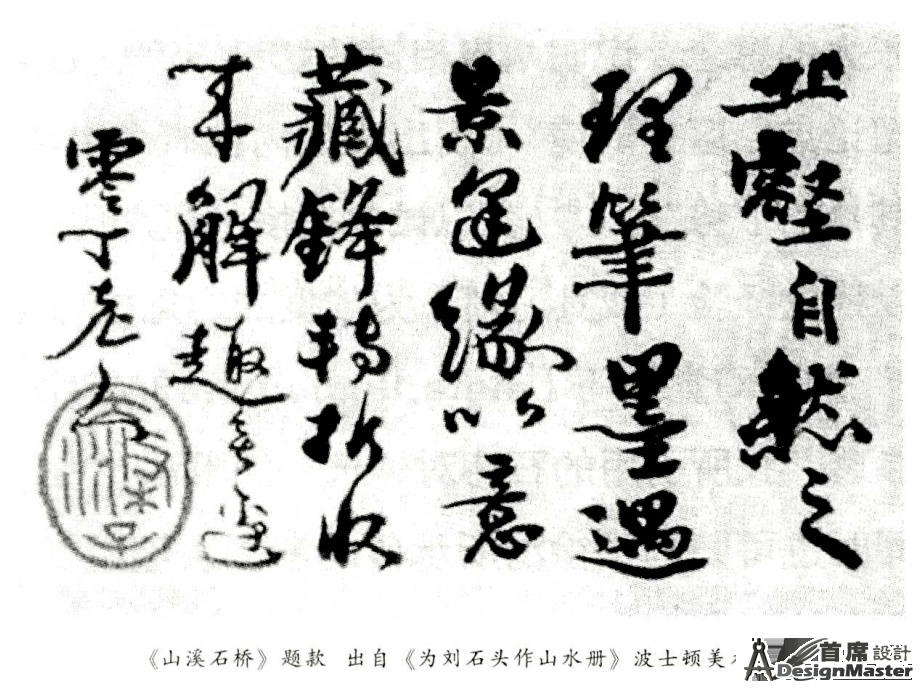 丘壑自然之
理筆墨遇
景逢緣以意
藏鋒轉折收
來解趣無邊
零丁老人
《山溪石桥》题款 出自《为刘石头作山水册》波士顿美
首席設計
DesignMaster